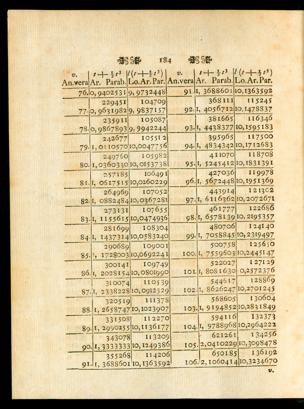 184
v. t + ⅓ t³ l (t + ⅓ t³) v. t + ⅓ t³ l (t + ⅓ t³)
An.vera Ar. Parab. Lo.Ar.Par. An.vera Ar. Parab. Lo.Ar.Par.
76. 0, 9402531 9,9732448 91. 1, 3688601 10,1363592
229451 104709 368111 115245
77. 0, 9631982 9,9837157 92. 1, 4056712 10,1478837
235911 105087 381665 116346
78. 0, 9867893 9,9942244 93. 1, 4438377 10,1595183
242677 105512 395965 117500
79. 1, 0110570 10,0047756 94. 1, 4834342 10,1712683
249760 105982 411070 118708
80. 1, 0360330 10,0153738 95. 1, 5245412 10,1831391
257185 106491 427036 119978
81. 1, 0617515 10,0260229 96. 1, 5672448 10,1951369
264969 107052 443914 121302
82. 1, 0882484 10,0367281 97. 1, 6116362 10,2072671
273131 107655 461777 122686
83. 1, 1155615 10,0474936 98. 1, 6578139 10,2195357
281699 108304 480706 124140
84. 1, 1437314 10,0583240 99. 1, 7058845 10,2319497
290689 109001 500758 125650
85. 1, 1728003 10,0692241 100. 1, 7559603 10,2445147
300141 109749 522027 127229
86. 1, 2028154 10,0801990 101. 1, 8081630 10,2572376
310074 110539 544617 128869
87. 1, 2338228 10,0912529 102. 1, 8626247 10,2701245
320519 111378 568605 130604
88. 1, 2658747 10,1023907 103. 1, 9194852 10,2831849
331508 112270 594116 132373
89. 1, 2990255 10,1136177 104. 1, 9788968 10,2964222
343078 113209 621261 134256
90. 1, 3333333 10,1249386 105. 2, 0410229 10,3098478
355268 114206 650185 136192
91. 1, 3688601 10,1363592 106. 2, 1060414 10,3234670
v.